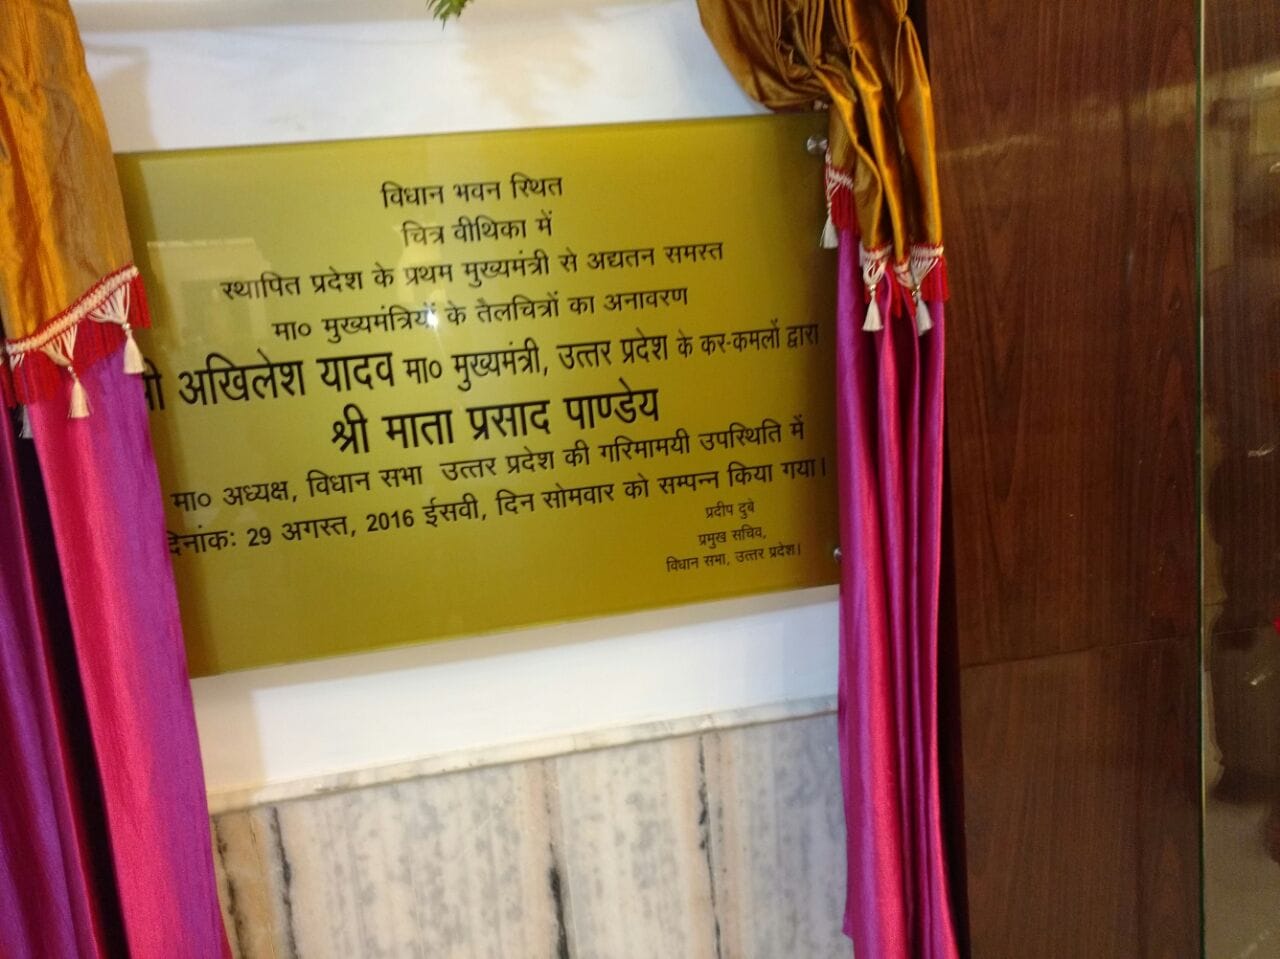 विधान भवन स्थित
चित्र वीथिका में
स्थापित प्रदेश के प्रथम मुख्यमंत्री से अद्यतन समस्त
मा० मुख्यमंत्रियों के तैलचित्रों का अनावरण
अखिलेश यादव मा० मुख्यमंत्री, उत्तर प्रदेश के कर-कमलों द्वारा
श्री माता प्रसाद पाण्डेय
मा० अध्यक्ष, विधान सभा उत्तर प्रदेश की गरिमामयी उपस्थिति में
दिनांकः 29 अगस्त, 2016 ईसवी, दिन सोमवार को सम्पन्न किया गया।
प्रदीप दुबे
प्रमुख सचिव,
विधान सभा, उत्तर प्रदेश।